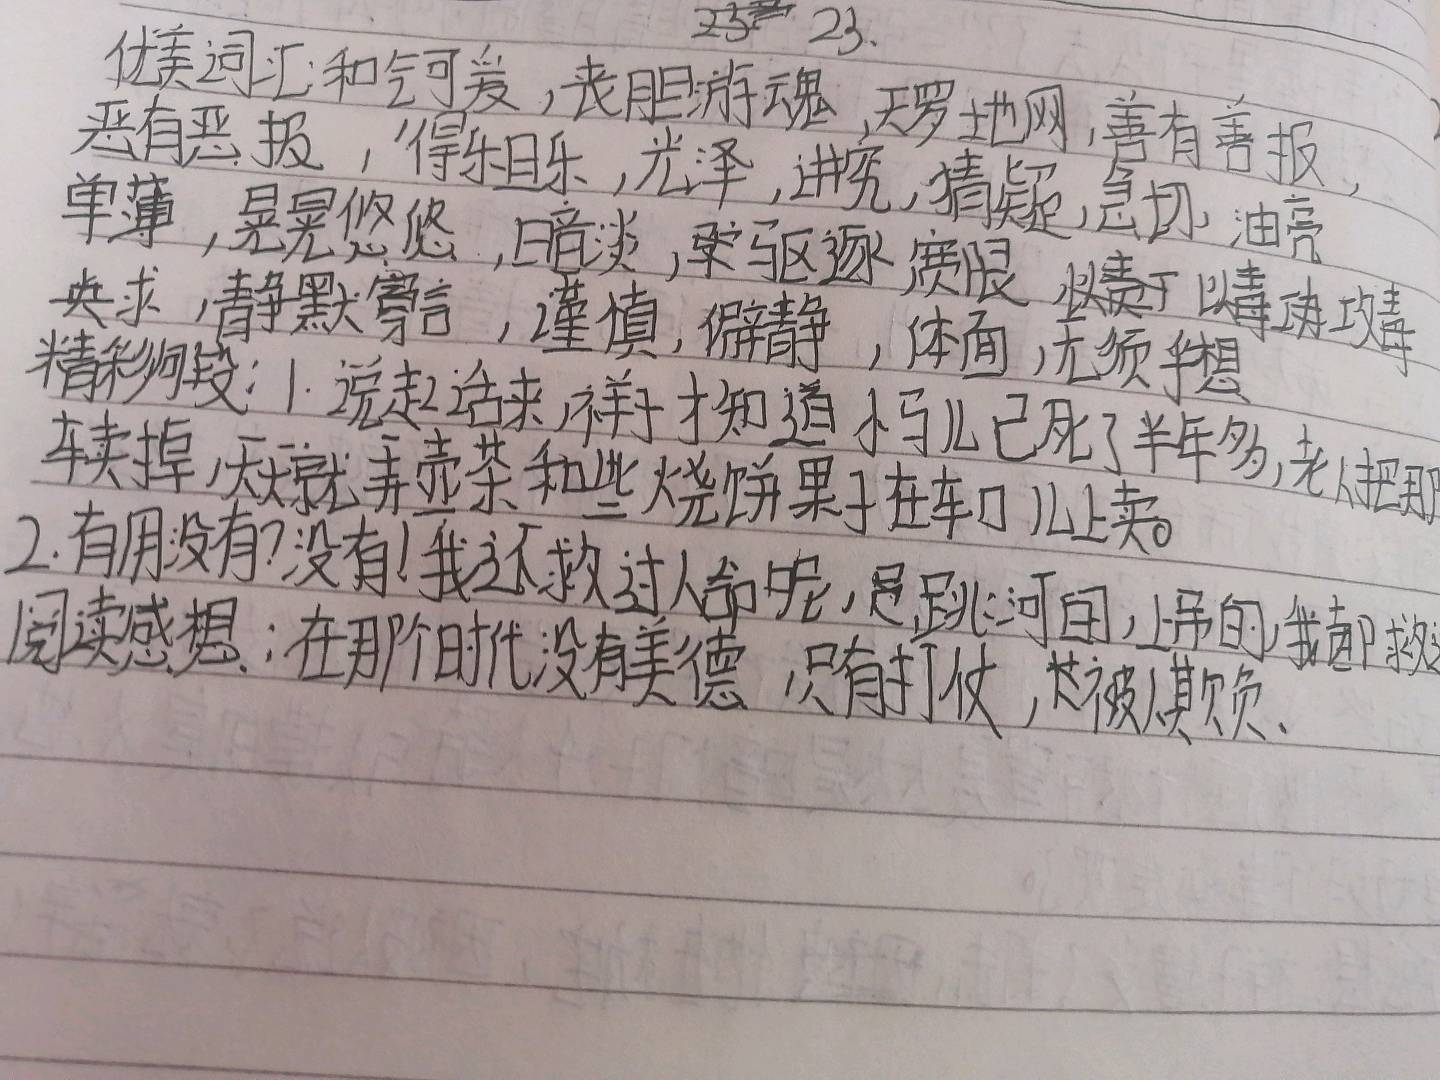 23.
优美词汇:和气可爱,丧胆游魂,天罗地网,善有善报,
恶有恶报,得乐且乐,光泽,讲究,猜疑,急切,油亮
单薄,晃晃悠悠,暗淡,驱逐 以毒攻毒
央求,静默寡言,谨慎,僻静,体面,无须乎想
精彩句段:1.说起话来,祥子才知道小马儿已死了半年多,老人把那
车卖掉,天天就弄壶茶和些烧饼果子在车口儿上卖。
2.有用没有?没有!我还救过人命呢,跳河的,上吊的,我都救
阅读感想:在那个时代没有美德 只有打仗,被人欺负、